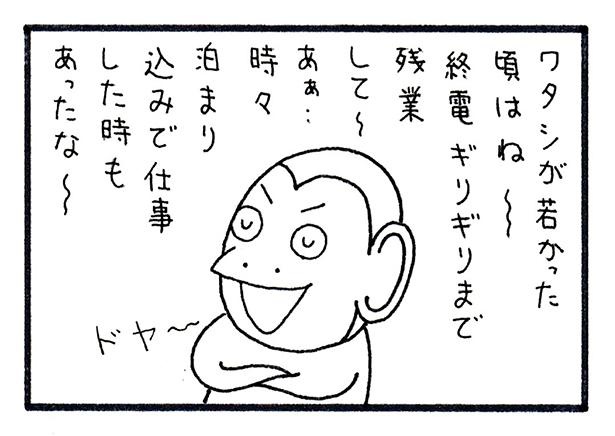 ワタシが若かった
頃はね〜
終電ギリギリまで
残業
して〜
あぁ…
時々
泊まり
込みで仕事
した時も
あったな〜
ドヤ〜